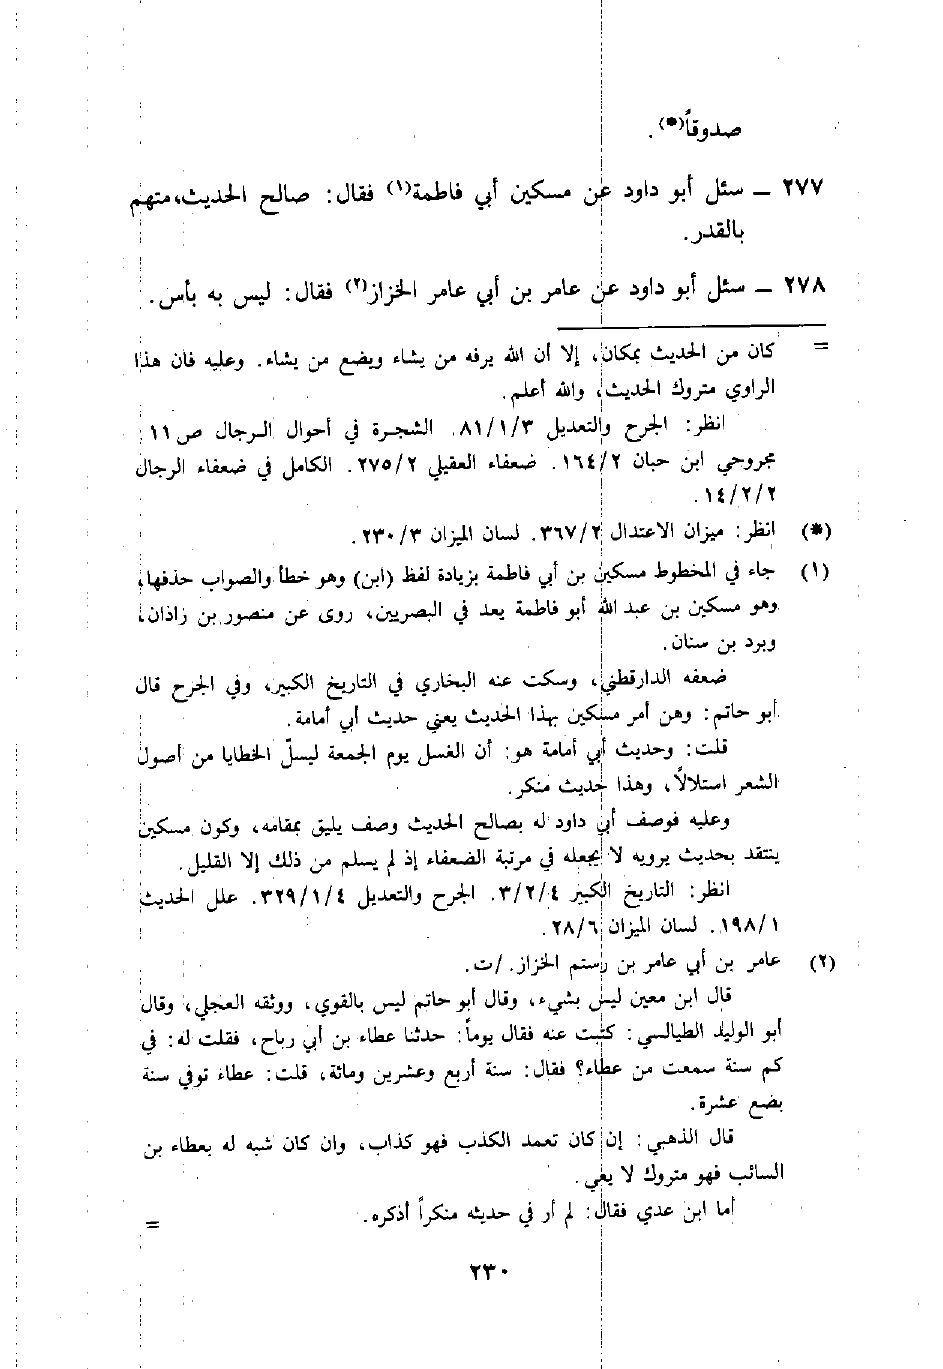 صدوقاً(*).
٢٧٧ ــ سئل أبو داود عن مسكين أبي فاطمة(١) فقال: صالح الحديث، متهم
بالقدر.
٢٧٨ ــ سئل أبو داود عن عامر بن أبي عامر الخزاز(٢) فقال: ليس به بأس.
= كان من الحديث بمكان، إلا أن الله يرفه من يشاء ويضع من يشاء. وعليه فان هذا
الراوي متروك الحديث، والله أعلم.
انظر: الجرح والتعديل ٨١/١/٣. الشجرة في أحوال الرجال ص ١١
مجروحي ابن حبان ١٦٤/٢. ضعفاء العقيلي ٢٧٥/٢. الكامل في ضعفاء الرجال
١٤/٢/٢.
(*) انظر: ميزان الاعتدال ٣٦٧/٢. لسان الميزان ٢٣٠/٣.
(١) جاء في المخطوط مسكين بن أبي فاطمة بزيادة لفظ (ابن) وهو خطأ والصواب حذفها،
وهو مسكين بن عبد الله أبو فاطمة يعد في البصريين، روى عن منصور بن زاذان،
وبرد بن سنان.
ضعفه الدارقطني، وسكت عنه البخاري في التاريخ الكبير، وفي الجرح قال
أبو حاتم: وهن أمر مسكين بهذا الحديث يعني حديث أبي أمامة.
قلت: وحديث أبي أمامة هو: أن الغسل يوم الجمعة ليسلّ الخطايا من أصول
الشعر استلالاً، وهذا حديث منكر.
وعليه فوصف أبي داود له بصالح الحديث وصف يليق بمقامه، وكون مسكين
ينتقد بحديث يرويه لا يجعله في مرتبة الضعفاء إذ لم يسلم من ذلك إلا القليل.
انظر: التاريخ الكبير ٣/٢/٤. الجرح والتعديل ٣٢٩/١/٤. علل الحديث
١٩٨/١. لسان الميزان ٢٨/٦.
(٢) عامر بن أبي عامر بن رستم الخزاز. /ت.
قال ابن معين ليس بشيء، وقال أبو حاتم ليس بالقوي، ووثقه العجلي، وقال
أبو الوليد الطيالسي: كتبت عنه فقال يوماً: حدثنا عطاء بن أبي رباح، فقلت له: في
كم سنة سمعت من عطاء؟ فقال: سنة أربع وعشرين ومائة، قلت: عطاء توفي سنة
بضع عشرة.
قال الذهبي: إن كان تعمد الكذب فهو كذاب، وان كان شبه له بعطاء بن
السائب فهو متروك لا يعي.
أما ابن عدي فقال: لم أر في حديثه منكراً أذكره. =
٢٣٠